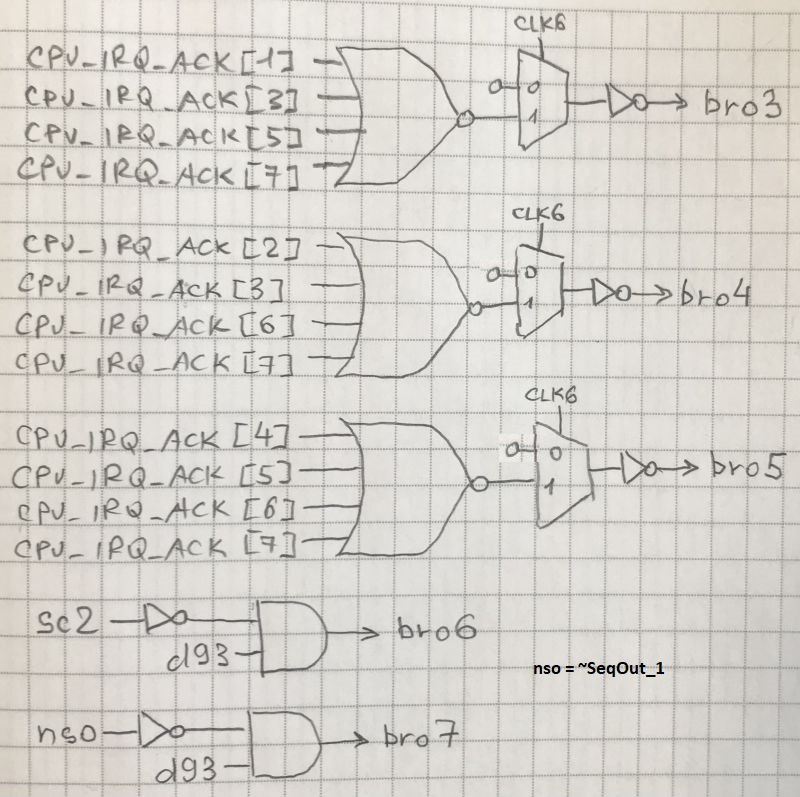 CLK6
CPU_IRQ_ACK [1]
0
CPU_IRQ_ACK [3]
bro3
1
CPU_IRQ_ACK [5]
CPU_IRQ_ACK [7]
CLK6
CPU_IRQ_ACK [2]
0
CPU_IRQ_ACK [3]
bro4
1
CPU_IRQ_ACK [6]
CPU_IRQ_ACK [7]
CLK6
CPU_IRQ_ACK [4]
0
CPU_IRQ_ACK [5]
bro5
1
CPU_IRQ_ACK [6]
CPU_IRQ_ACK [7]
sc2
bro6
d93
nso = ~SeqOut_1
nso
bro7
d93